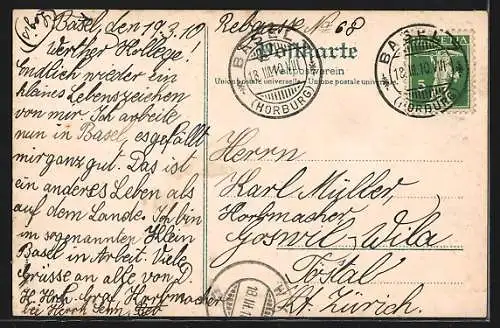 Basel, den 19.3.10
Werther Kollege!
Endlich wieder ein
kleines Lebenszeichen
von mir. Ich arbeite
nun in Basel, es gefällt
mir ganz gut. Das ist
ein anderes Leben als
auf dem Lande. Ich bin
im sogenannten Klein
Basel in Arbeit. Viele
Grüsse an alle von D.
Graf, Korbmacher
bei Herrn Senn,
No 68
Postkarte
Weltpostverein
Union postale universelle. Unione postale universale
BASEL
18.III.10.VIII
(HORBURG)
BASEL
18.III.10.VIII
(HORBURG)
HELVETIA
Herrn
Karl Müller,
Korbmacher
Goswil Wila
Tösstal
Kt. Zürich.
18.III.1